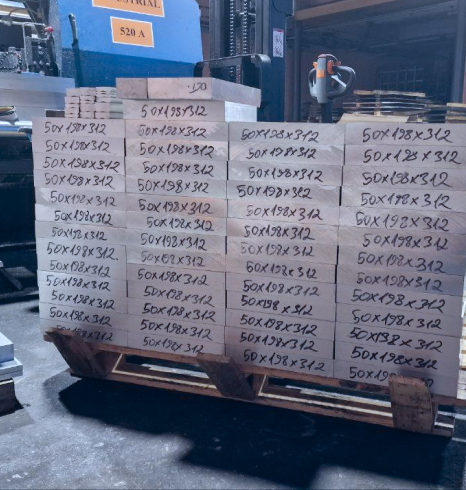 USTRIAL
520 A
-120
50x198x312
50x198x312
50x198x312
50x198x312
50x198x312
50x198x312
50x198x312
50x198x312
50x198x312
50x198x312
50x198x312
50x198x312
50x198x312
50x198x312
50x198x312
50x198x312
50x198x312
50x198x312
50x198x312
50x198x312
50x198x312
50x198x312
50x198x312
50x198x312
50x198x312
50x198x312
50x198x312
50x198x312
50x198x312
50x198x312
50x198x312
50x198x312
50x198x312
50x198x312
50x198x312
50x198x312
50x198x312
50x198x312
50x198x312
50x198x312
50x198x312
50x198x312
50x198x312
50x198x312
50x198x312
50x198x312
50x198x312
50x198x312
50x198x312
50x198x312
50x198x312
50x198x312
50x198x312
50x198x312
50x198x312
50x198x312